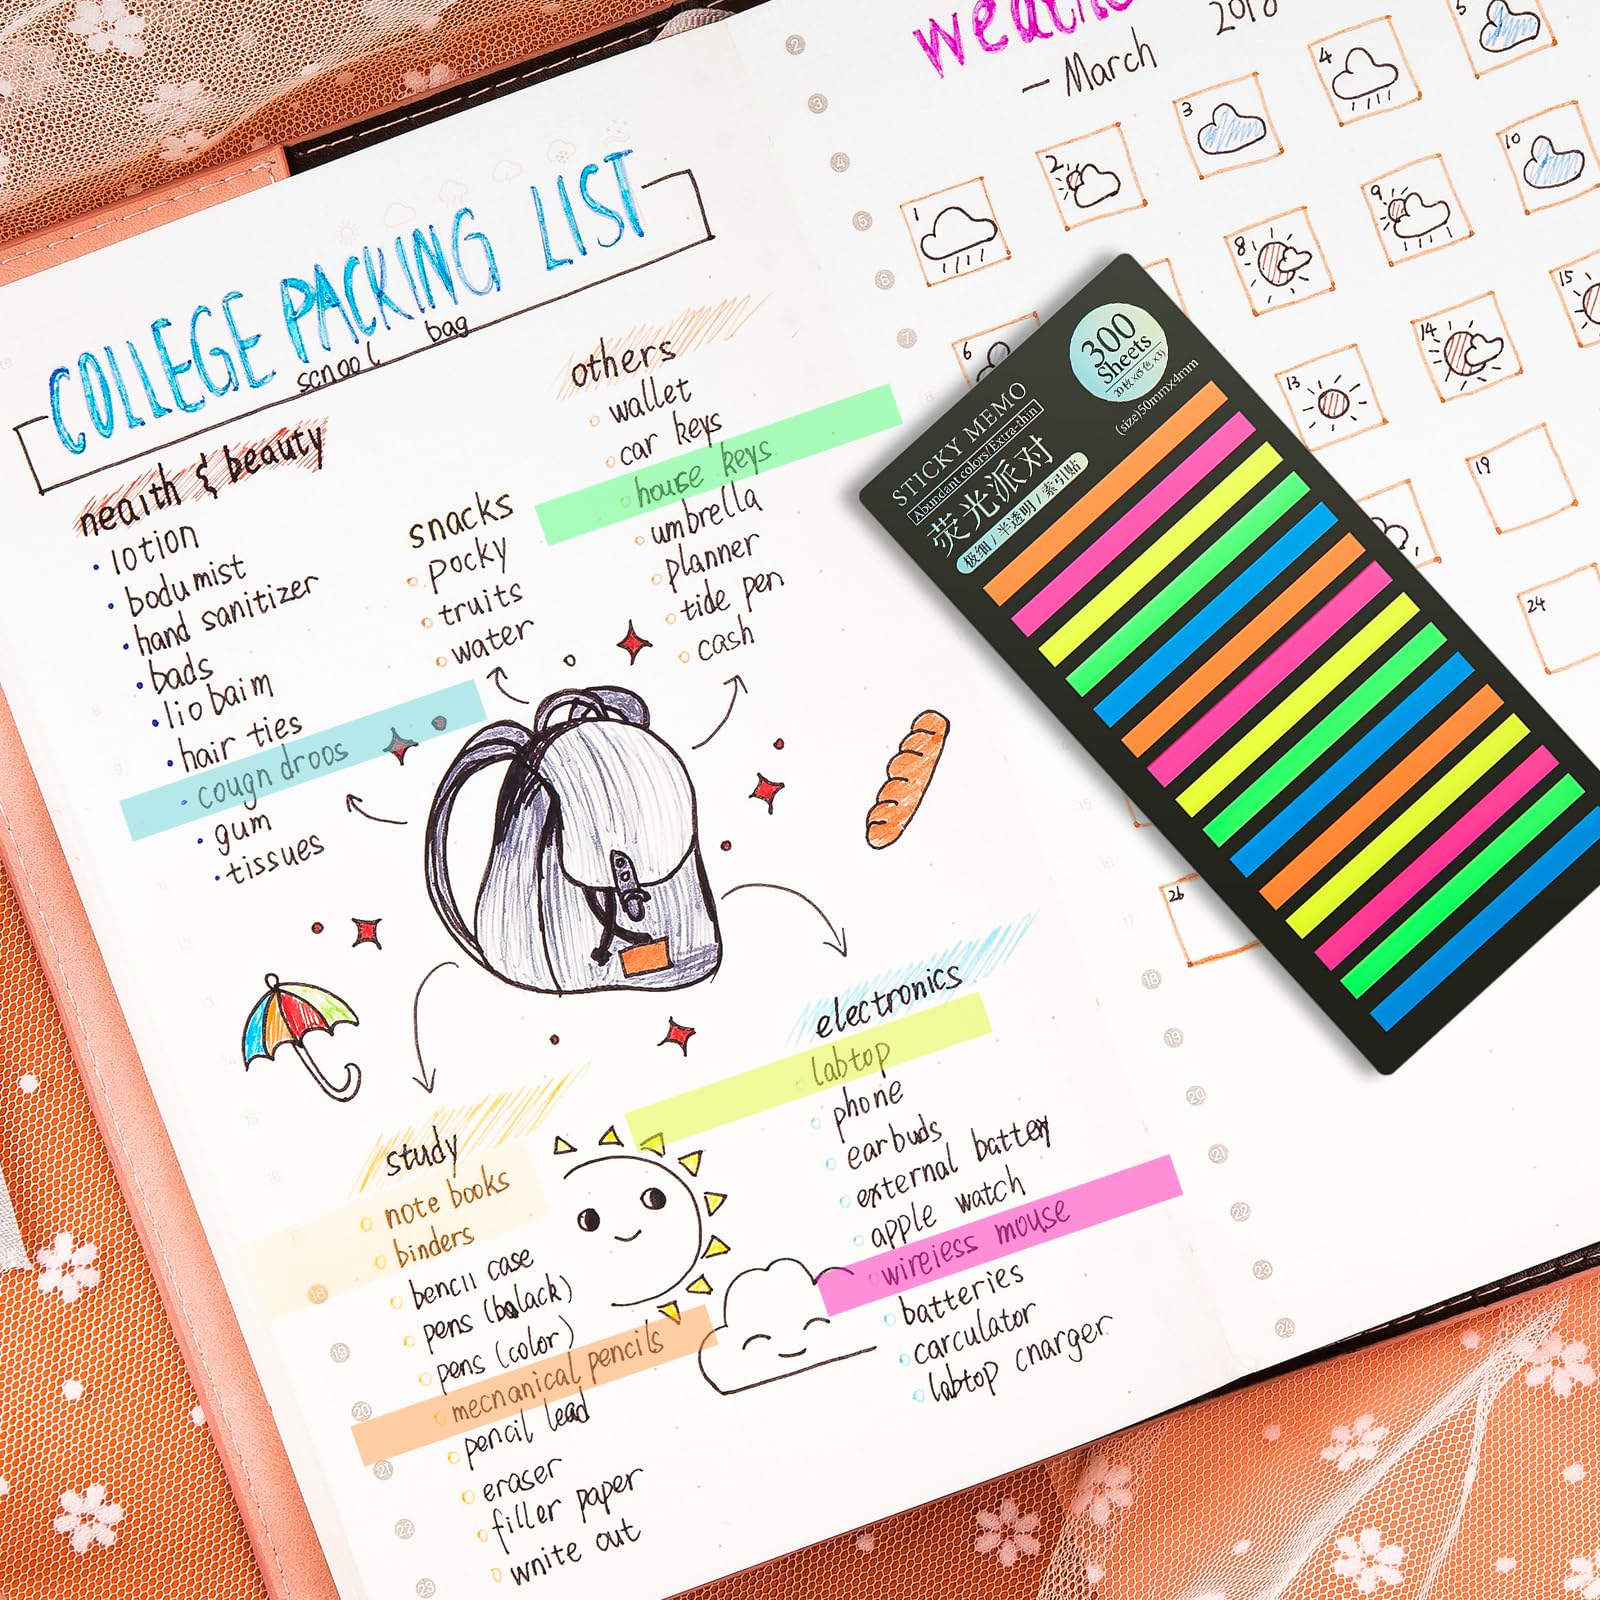 COLLEGE PACKING LIST
scnool bag
neaith & beauty
lotion
bodumist
hand sanitizer
bads
lio baim
hair ties
cougn droos
gum
tissues
snacks
pocky
truits
water
others
wallet
car keys
house keys
umbrella
planner
tide pen
cash
study
note books
binders
bencil case
pens (balack)
pens (color)
mecnanical pencils
pencil lead
eraser
filler paper
wnite out
electronics
labtop
phone
earbuds
external battery
apple watch
wirejess mouse
batteries
carculator
labtop cnarger
- March
1
2
3
4
5
6
8
9
10
13
14
15
19
24
26
STICKY MEMO
Abundant colors/Extra-thin
荧光派对
极细 / 半透明 / 索引贴
300
Sheets
(size)50mm×4mm
2
3
4
5
6
7
17
18
19
20
21
22
23
24
18
19
20
21
22
23